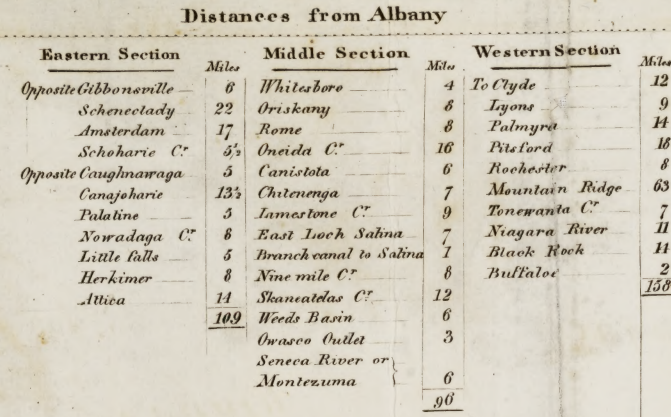 Distances from Albany
Eastern Section
Miles
Opposite Gibbonsville 6
Schenectady 22
Amsterdam 17
Schoharie Cr. 5½
Opposite Caughnawaga 5
Canajoharie 13½
Palatine 5
Nowadaga Cr. 8
Little falls 5
Herkimer 8
Attica 14
109
Middle Section
Miles
Whitesboro 4
Oriskany 8
Rome 8
Oneida Cr. 16
Canistota 6
Chitenenga 7
Limestone Cr. 9
East Loch Salina 7
Branch canal to Salina 1
Nine mile Cr. 8
Skaneatelas Cr. 12
Weeds Basin 6
Owasco Outlet 3
Seneca River or
Montezuma 6
96
Western Section
Miles
To Clyde 12
Lyons 9
Palmyra 14
Pitsford 18
Rochester 8
Mountain Ridge 63
Tonewanta Cr. 7
Niagara River 11
Black Rock 14
Buffaloe 2
158